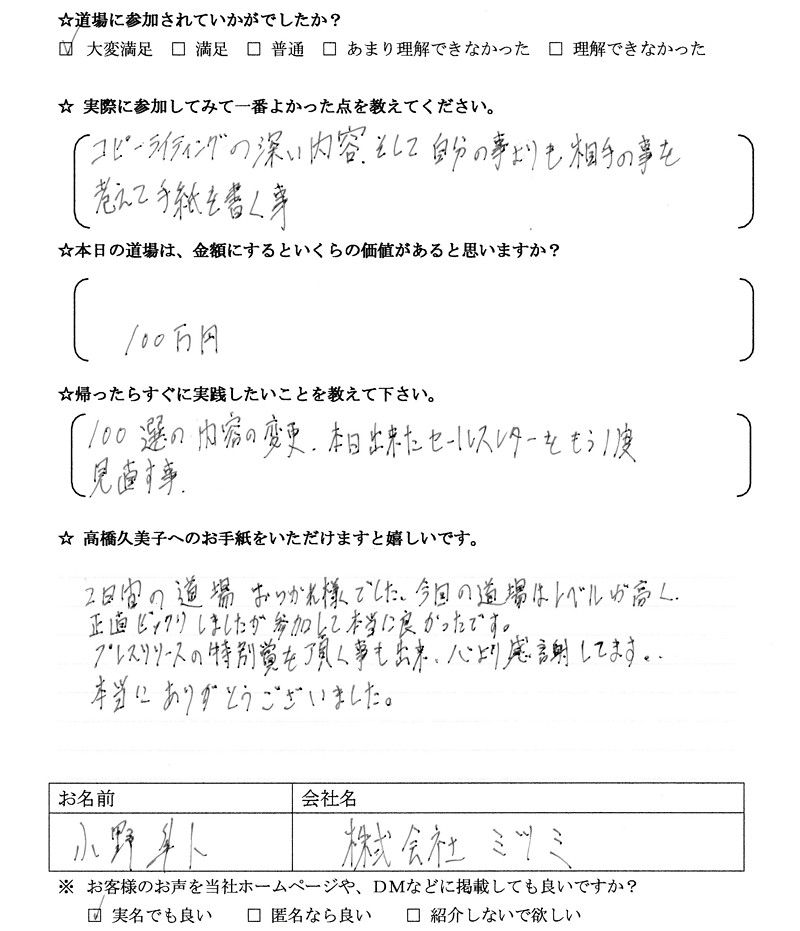 ☆道場に参加されていかがでしたか？
☑ 大変満足 □ 満足 □ 普通 □ あまり理解できなかった □ 理解できなかった
☆ 実際に参加してみて一番よかった点を教えてください。
コピーライティングの深い内容、そして自分の事よりも相手の事を
考えて手紙を書く事
☆本日の道場は、金額にするといくらの価値があると思いますか？
100万円
☆帰ったらすぐに実践したいことを教えて下さい。
100選の内容の変更、本日出来たセールスレターをもう1度
見直す事。
☆ 高橋久美子へのお手紙をいただけますと嬉しいです。
2日間の道場おつかれ様でした。今回の道場はレベルが高く、
正直ビックリしましたが参加して本当に良かったです。
プレスリリースの特別賞を頂く事も出来、心より感謝してます。
本当にありがとうございました。
お名前 会社名
小野 隼人 株式会社 ミツミ
※ お客様のお声を当社ホームページや、DMなどに掲載しても良いですか？
☑ 実名でも良い □ 匿名なら良い □ 紹介しないで欲しい